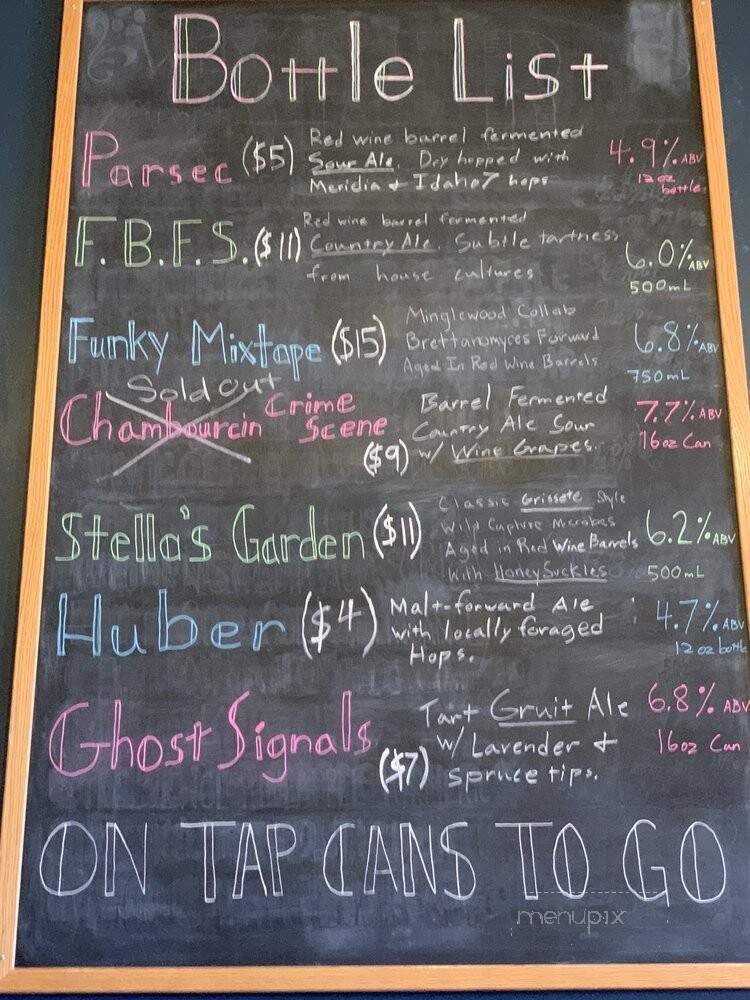 Bottle List
Parsec ($5) Red wine barrel fermented
Sour Ale. Dry hopped with
Meridia + Idaho7 hops
4.9% ABV
12 oz
bottle
F.B.F.S. ($11) Red wine barrel fermented
Country Ale. Subtle tartness
from house cultures
6.0% ABV
500mL
Funky Mixtape ($15) Minglewood Collab
Brettanomyces Forward
Aged In Red Wine Barrels
6.8% ABV
750mL
Sold out
Chambourcin Crime
Scene
($9)
Barrel Fermented
Country Ale Sour
w/ Wine Grapes.
7.7% ABV
16oz Can
Stella's Garden ($11) Classic Grissete Style
Wild Capture Microbes
Aged in Red Wine Barrels
With HoneySuckles
6.2% ABV
500mL
Huber ($4) Malt-forward Ale
with locally foraged
Hops.
4.7% ABV
12 oz bottle
Ghost Signals
($7)
Tart Gruit Ale
w/ Lavender +
spruce tips.
6.8% ABV
16oz Can
ON TAP CANS TO GO
menupix